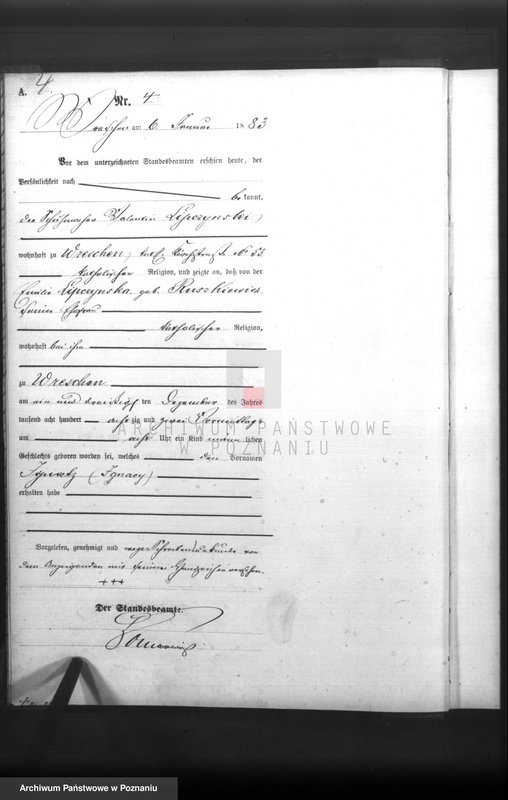 4.
A.
Nr. 4
Wreschen am 6 Januar 1883
Vor dem unterzeichneten Standesbeamten erschien heute, der
Persönlichkeit nach
bekannt,
der Schuhmacher Valentin Lipczynski,
wohnhaft zu Wreschen, Kirchstraße No 53
katholischer Religion, und zeigte an, daß von der
Emilie Lipczynska geb. Ruszkiewicz
seiner Ehefrau
katholischer Religion,
wohnhaft bei ihm
zu Wreschen
am ein und dreißigsten Dezember des Jahres
tausend acht hundert achtzig und zwei Vormittags
um acht Uhr ein Kind männlichen
Geschlechts geboren worden sei, welches den Vornamen
Ignatz (Ignacy)
erhalten habe
Vorgelesen, genehmigt und wegen Schreibensunkunde von
dem Anzeigenden mit seinem Handzeichen versehen.
+++
Der Standesbeamte.
ARCHIWUM PAŃSTWOWE
W POZNANIU
Archiwum Państwowe w Poznaniu